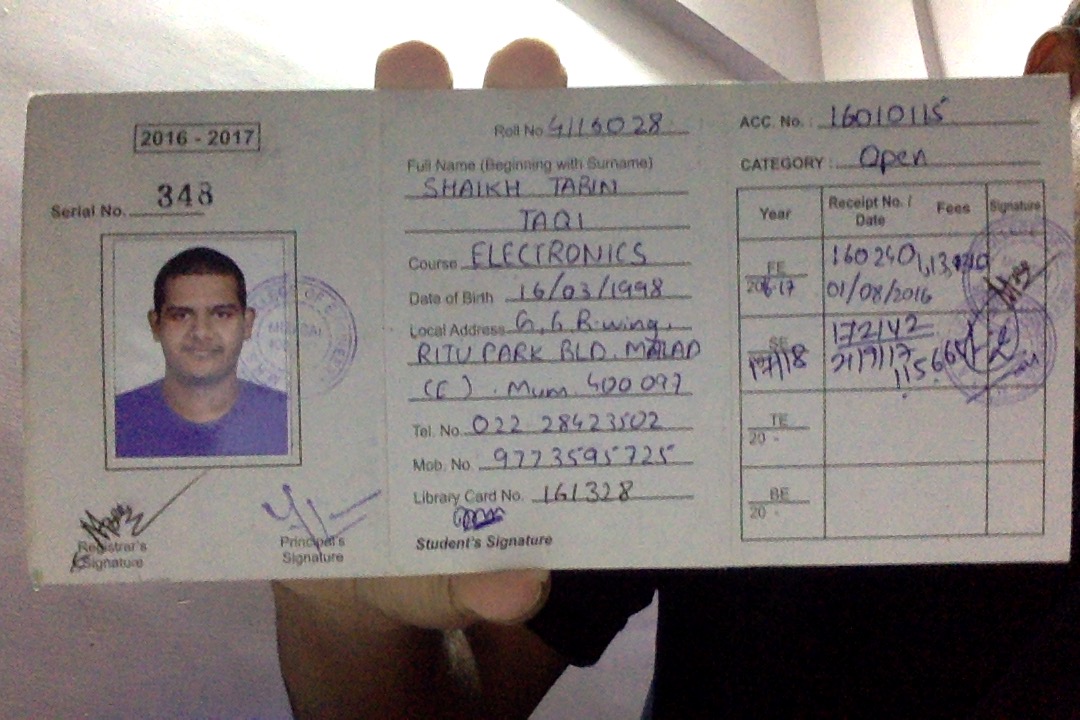 2016 - 2017
Serial No. 348
Registrar's
Signature
Principal's
Signature
Roll No 4116028
Full Name (Beginning with Surname)
SHAIKH TABIN
TAQI
Course ELECTRONICS
Date of Birth 16/03/1998
Local Address G, 6 B-wing,
RITU PARK BLD. MALAD
(E). Mum. 400 097
Tel. No. 022 28423502
Mob. No. 9773595725
Library Card No. 161328
Student's Signature
ACC. No. : 16010115
CATEGORY : Open
Year Receipt No. / Date Fees Signature
FE 160240
2016-17 01/08/2016
SE 172142
17/18
TE
20 -
BE
20 -